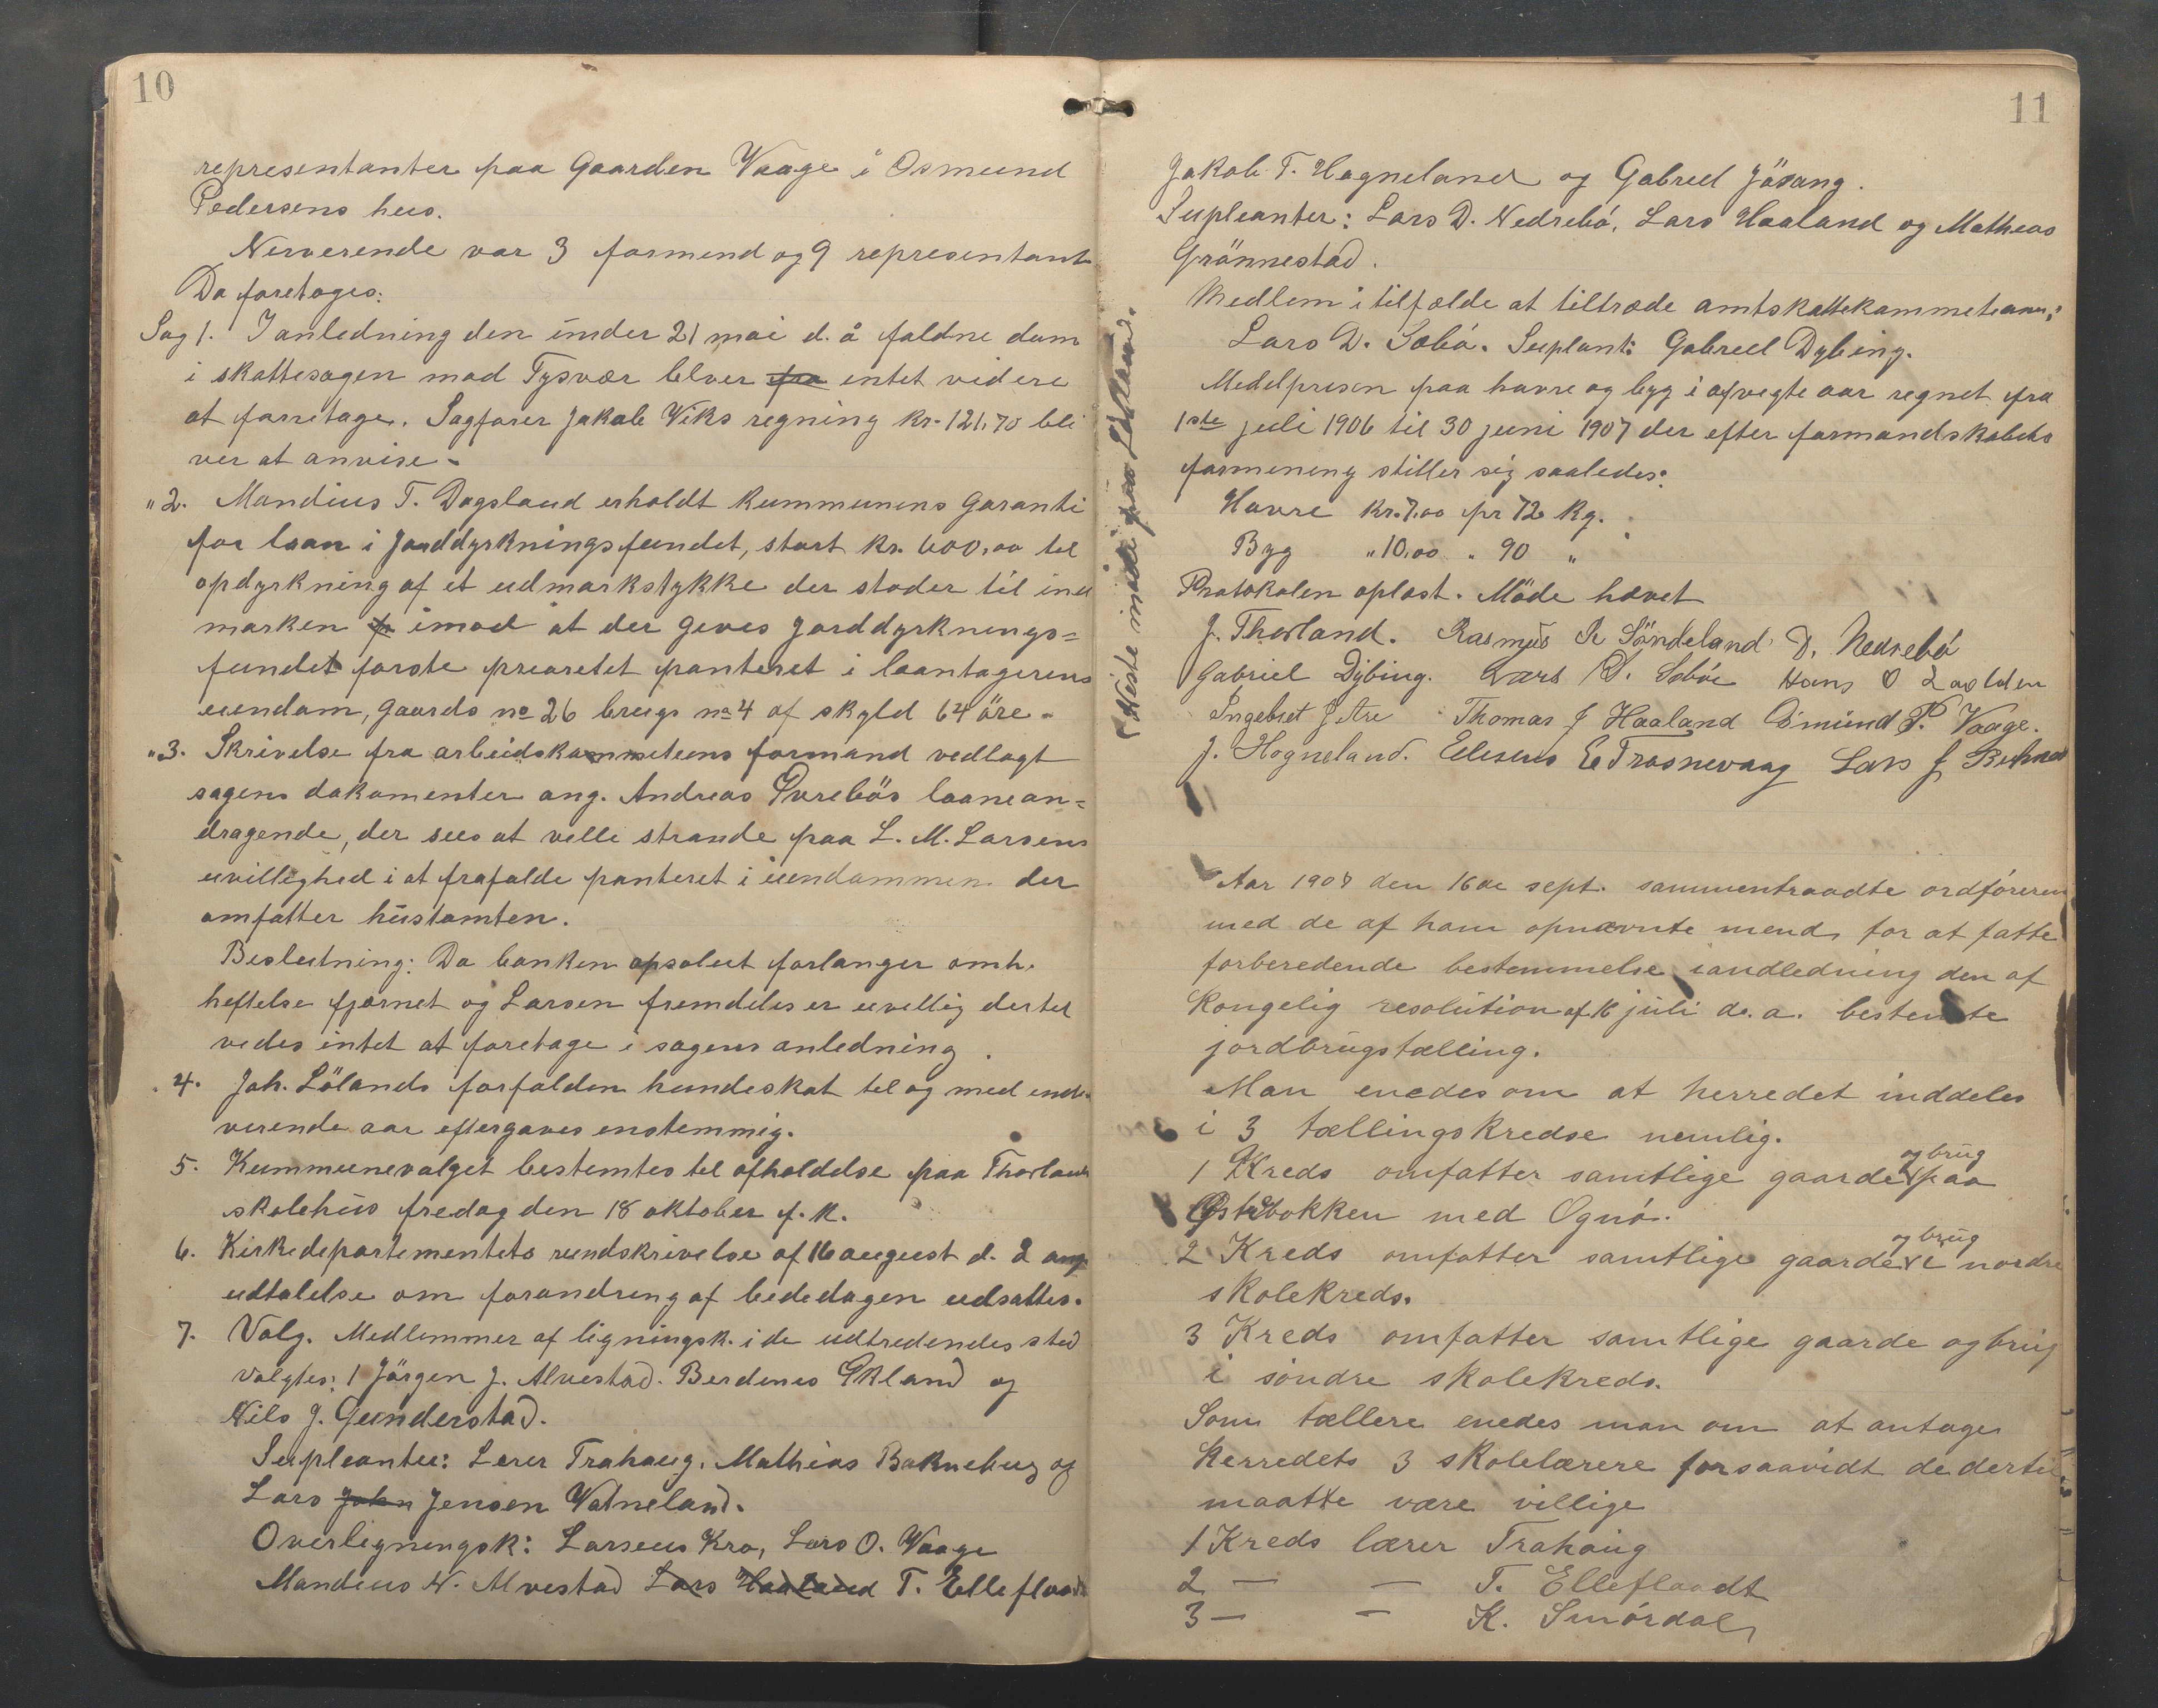 10
representanter paa Gaarden Vaage i Osmund
Pedersens hus.
Nerverende var 3 formend og 9 representant
Da foretoges:
Sag 1. I anledning den under 21 mai d. å faldne dom
i skattesagen mod Tysvær blver fra intet videre
at forretage. Sagforer Jakob Viks regning kr. 121,70 bli
ver at anvise -
" 2. Mandius T. Dagsland erholdt kummunens Garanti
for laan i Jorddyrkningsfundet, stort kr. 600,00 til
opdyrkning af et udmarkstykke der stoder til ind
marken fr imod at der gives Jorddyrknings=
fundet forste prioretet panteret i laantagerens
eiendom, gaards no 26 brugs no 4 af skyld 64 öre -
" 3. Skrivelse fra arbeidskommiteens formand vedlagt
sagens dokomenter ang. Andreas Qvrebös laanean=
dragende, der sees at ville strande paa L. M. Larsens
uvillighed i at frafalde panteret i eiendommen der
omfatter hüstomten.
Beslutning: Da banken apsolut forlanger omh.
heftelse fjernet og Larsen fremdeles er uvillig dertil
vedes intet at foretage i sagens anledning.
. 4. Joh. Lölands forfalden hundeskat til og med inde-
verende aar eftergaves enstemmig.
5. Kummunevalget bestemtes til afholdelse paa Thorland
skolehus fredag den 18 oktober f. k.
6. Kirkedepartementets rundskrivelse af 16 august d. å ang
udtalelse om forandring af bededagen udsattes.
7. Valg. Medlemmer af ligningsk. i de udtredendes sted
valgtes: 1 Jörgen J. Alvestad. Berdines Økland og
Nils J. Gunderstad.
Supleanter: Lerer Trahaug. Mathias Bakneberg og
Lars John Jensen Vatneland.
Overligningsk: Larseus Kro, Lars O. Vaage
Mandius N. Alvestad Lars Haaland T. Elleflaadt
(Neste møde paa Løland.
11
Jakob T. Hagneland og Gabriel Jösang.
Supleanter: Lars D. Nedrebó, Lars Haaland og Matheas
Grönnestad.
Medlem i tilfælde at tiltræde amtskattekommeteen:
Lars D. Sæbö. Suplant: Gabriel Dybing.
Medelprisen paa havre og byg i afvegte aar regnet fra
1ste juli 1906 til 30 juni 1907 der efter formandskabets
formening stiller sig saaledes:
Havre kr. 7.00 pr 72 kg.
Byg " 10.00 " 90 "
Protokolen oplæst. Möde hævet
J. Thorland. Rasmus R Söndeland D. Nedrebó
Gabriel Dybing. Lars D. Sæbóe Hans O Laalden
Ingebret J Are Thomas J Haaland Osmünd P. Vaage.
J. Hogneland. Eliseus E Trosnavaag Lars J
Aar 1907 den 16de sept. sammentraadte ordføreren
med de af ham opnævnte mend for at fatte
forberedende bestemmelse i andledning den af
Kongelig resolution af 16 juli d.a. bestemte
jordbrugstælling.
Man enedes om at herredet inddeles
i 3 tællingskredse nemlig.
1 Kreds omfatter samtlige gaarde og brug paa
Østrebokken med Ognó.
2 Kreds omfatter samtlige gaarde og brug i nordre
skolekreds.
3 Kreds omfatter samtlige gaarde og brug
i sóndre skolekreds.
Som tællere enedes man om at antage
Herredets 3 skolelærere forsaavidt de dertil
maatte være villige
1 Kreds lærer Trahaug
2 — — T. Elleflaadt
3 — — K. Smórdal